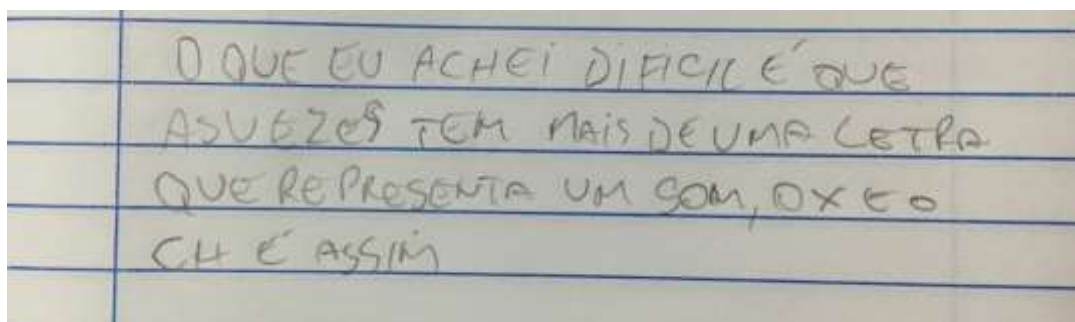 O QUE EU ACHEi DIFICIL É QUE
ASVEZES TEM MAiS DE UMA LETRA
QUE REPRESENTA UM SOM, O X E O
CH É ASSIM